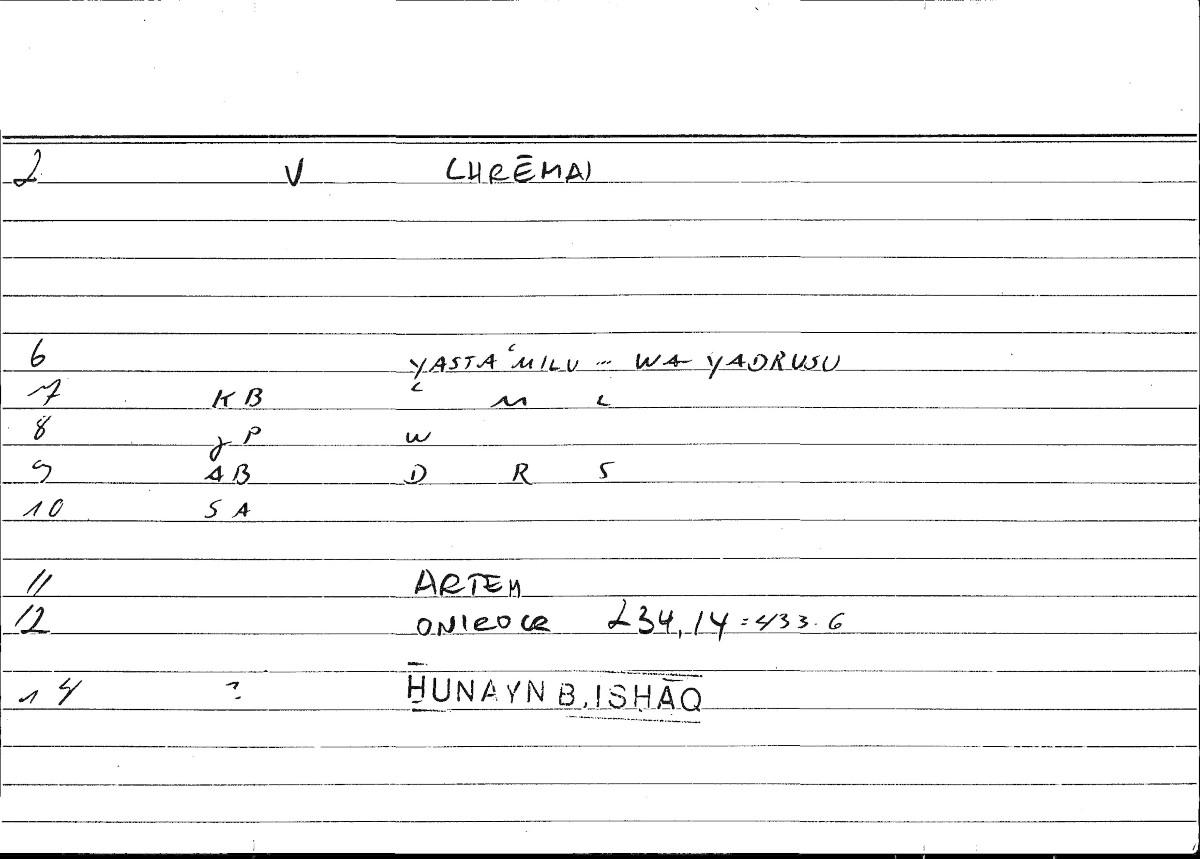 2 V CHRĒMAI
6 YASTAʿMILU ... WA YADRUSU
7 KB ʿ M L
8 JP W
9 AB D R S
10 SA
11 ARTEM
12 ONIROCR 234,14 = 433.6
14 ? ḤUNAYN B. ISḤĀQ